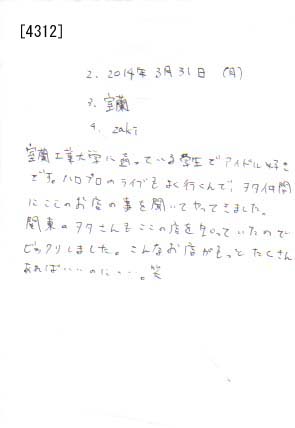 [4312]
2. 2014年 3月 31日 (月)
3. 室蘭
4. zaki
室蘭工業大学に通っている学生でアイドル好き
です。ハロプロのライブもよく行くんで、ヲタ仲間
にここのお店の事を聞いてやってきました。
関東のヲタさんもここの店を知っていたので
ビックリしました。こんなお店がもっとたくさん
あれば・・・のに・・・。笑